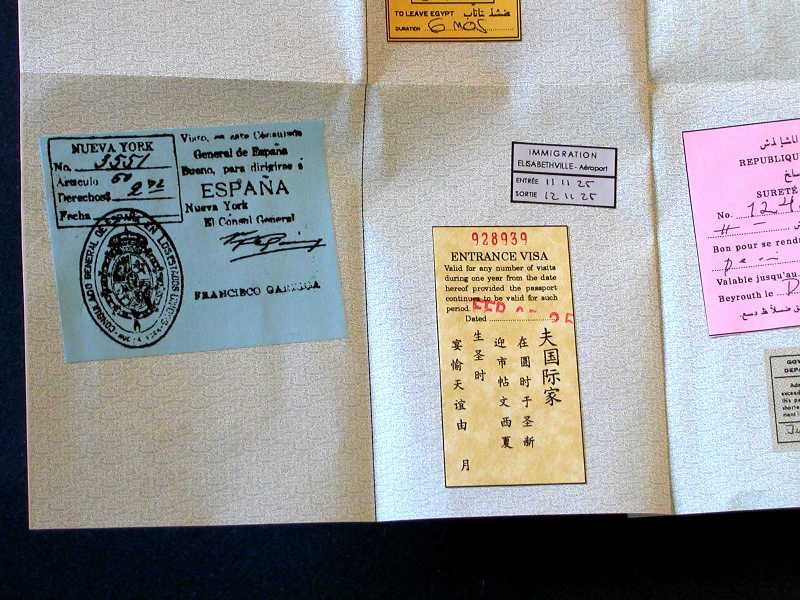 TO LEAVE EGYPT
DURATION 6 mos
NUEVA YORK
No. 3551
Artículo 60
Derechos$
Fecha
Visto, en este Consulado
General de España
Bueno, para dirigirse á
ESPAÑA
Nueva York
El Cónsul General
FRANCISCO
CONSULADO GENERAL DE ESPAÑA EN LOS ESTADOS UNIDOS
IMMIGRATION
ELISABETHVILLE - Aéroport
ENTRÉE 11 11 25
SORTIE 12 11 25
928939
ENTRANCE VISA
Valid for any number of visits
during one year from the date
hereof provided the passport
continues to be valid for such
period.
Dated
夫国际家
在圆时于圣新
迎市帖文西夏
生圣时
宴愉天谊由月
REPUBLIQUE
SURETÉ
No. 124
Bon pour se rend
Valable jusqu'au
Beyrouth le
GOV
DEPA